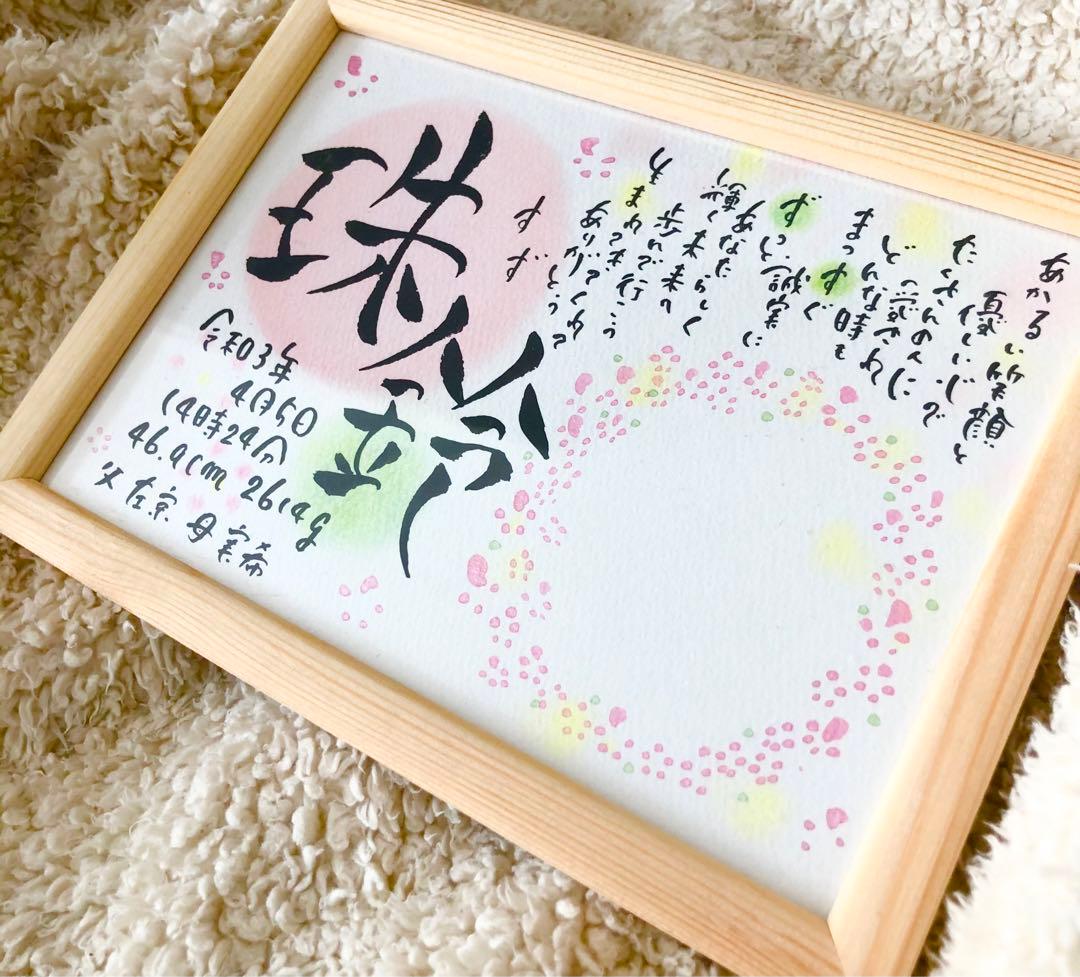 あかるい笑顔と
優しい心で
たくさんの人に
愛され
どんな時も
まっすぐ
ずっと誠実に
あなたらしく
輝く未来へ
歩んで行こう
ありがとう
すず
珠鈴
令和3年
4月5日
14時24分
46.9cm 2614g
父 左京 母 実希